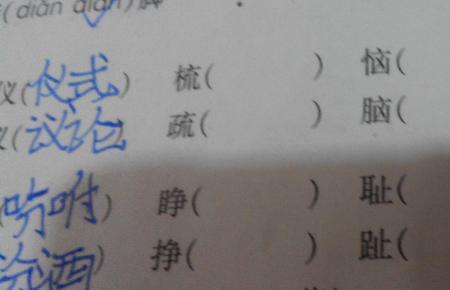 (diǎn qiān)
仪(仪式) 梳( ) 恼(
议(议论) 疏( ) 脑(
(吩咐) 睁( ) 耻(
) 挣( ) 趾(